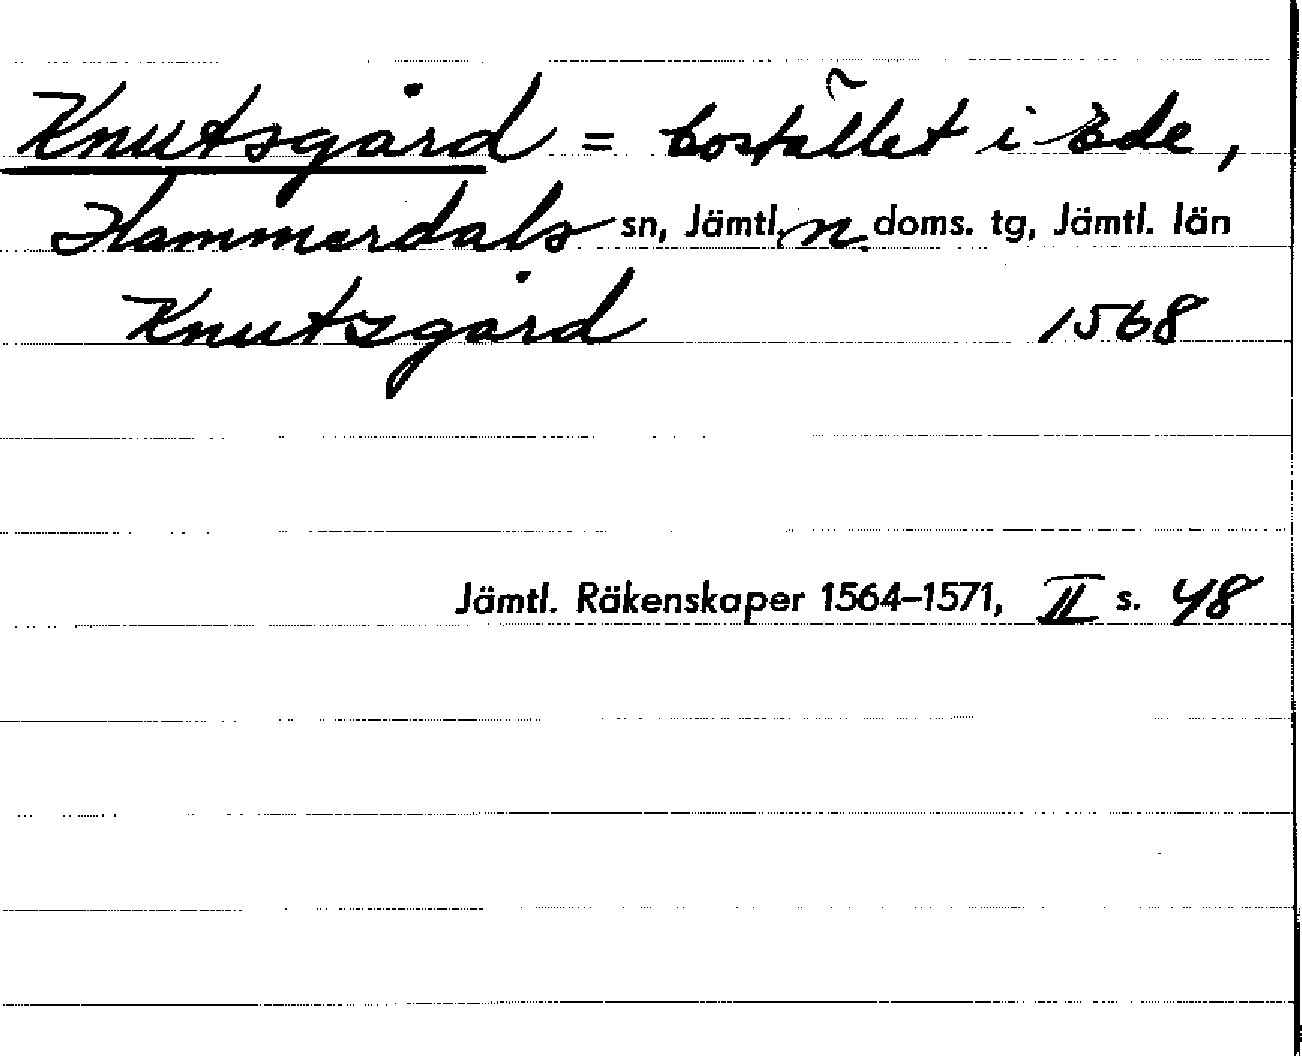 Knutsgård = bostället i Ede,
Hammerdals sn, Jämtl. n. doms. tg, Jämtl. län
Knutzgård 1568
Jämtl. Räkenskaper 1564–1571, II s. 48